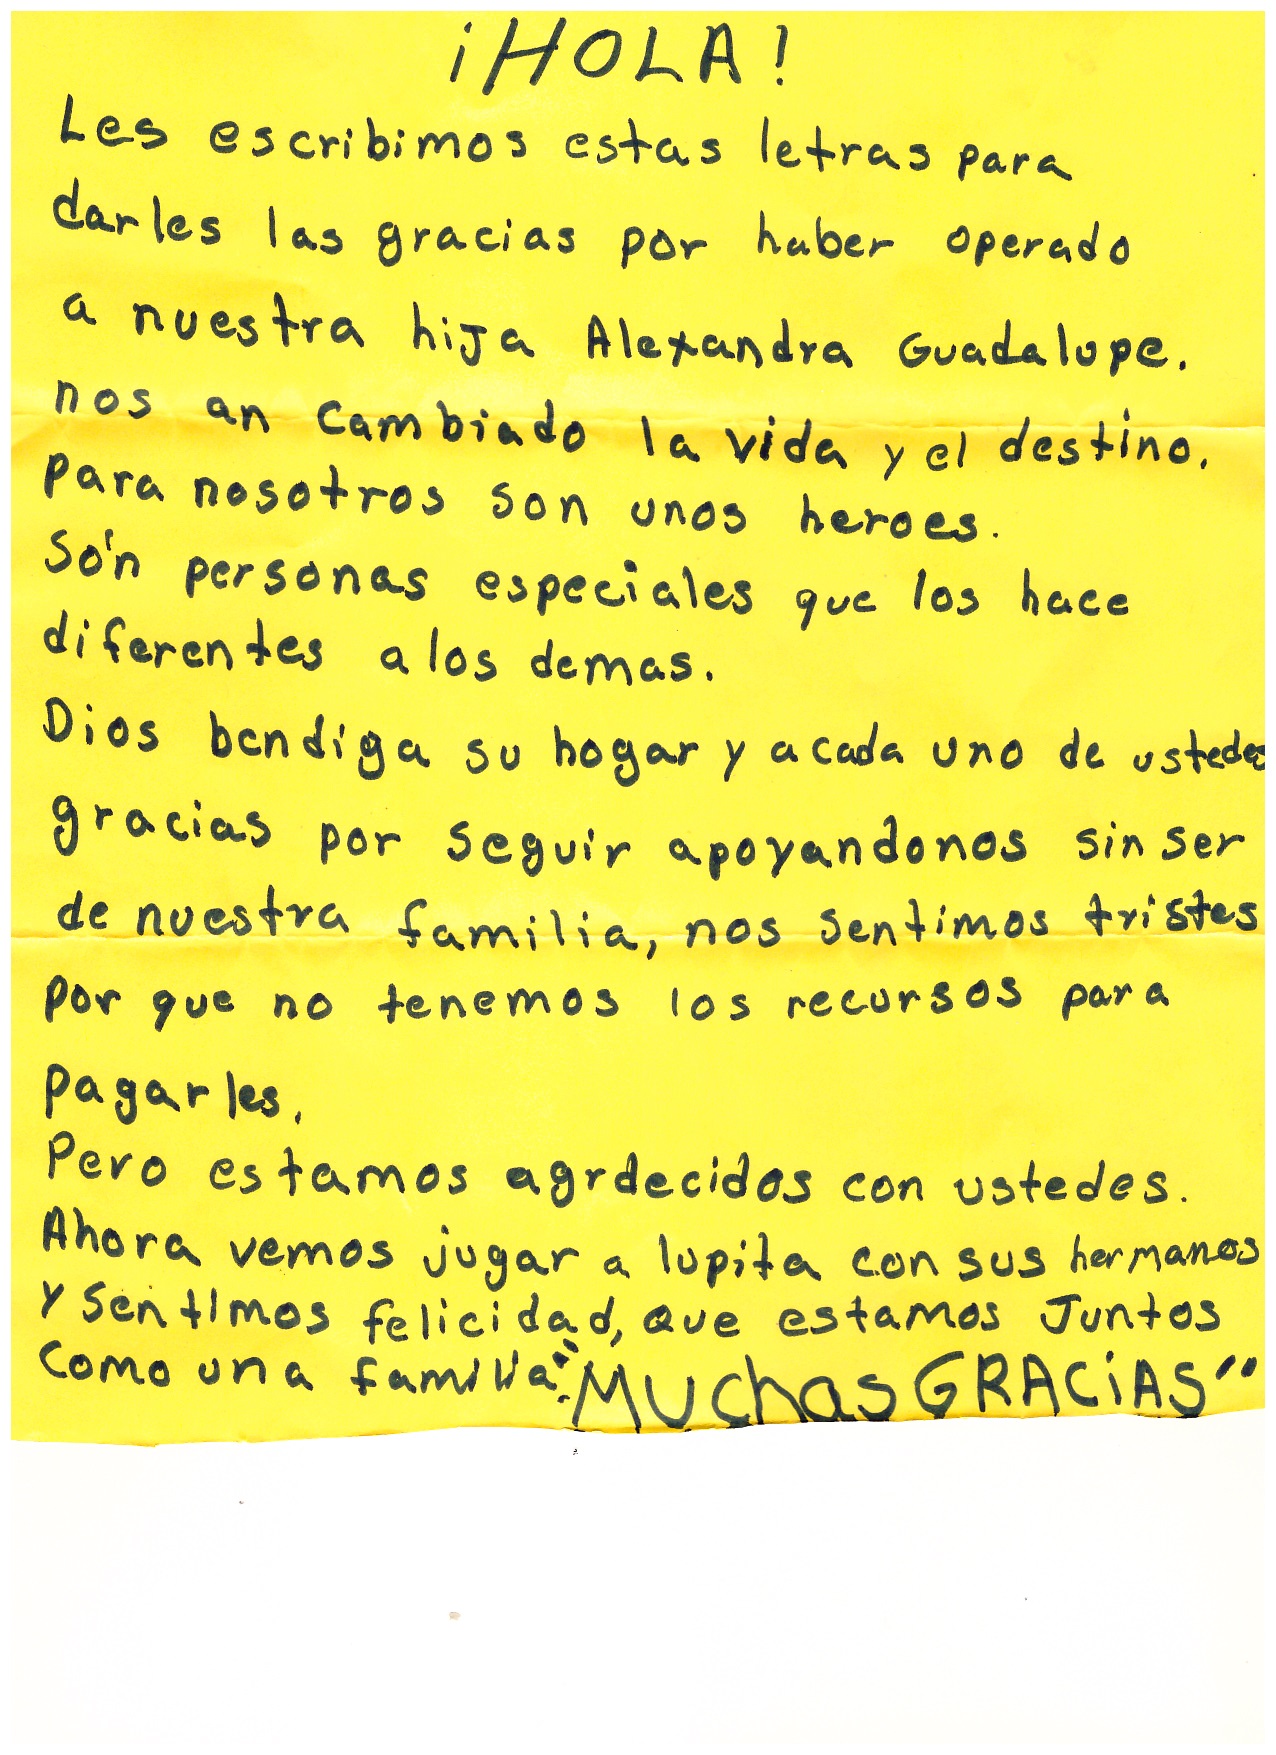 ¡HOLA!
Les escribimos estas letras para
darles las gracias por haber operado
a nuestra hija Alexandra Guadalupe.
nos an cambiado la vida y el destino.
para nosotros son unos heroes.
Són personas especiales que los hace
diferentes a los demas.
Dios bendiga su hogar y a cada uno de ustedes
gracias por seguir apoyandonos sin ser
de nuestra familia, nos sentimos tristes
por que no tenemos los recursos para
pagarles.
Pero estamos agrdecidos con ustedes.
Ahora vemos jugar a lupita con sus hermanos
y sentimos felicidad, que estamos Juntos
como una familia. "MUchas GRACiAS"